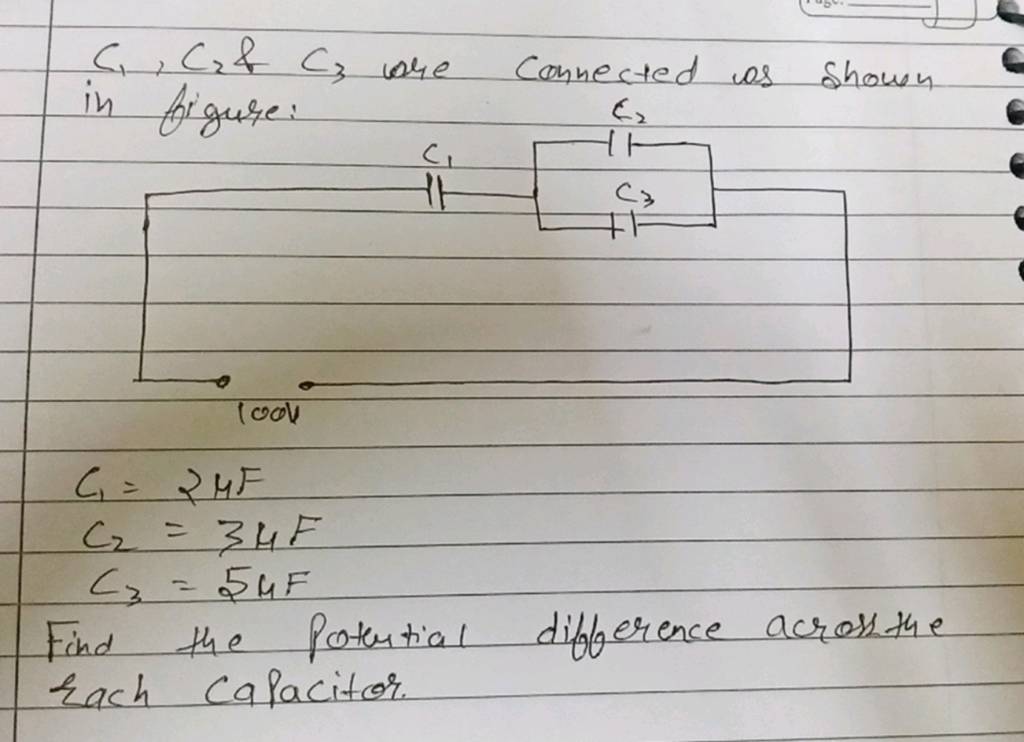 C₁, C₂ & C₃ are Connected as Shown
in figure:
C₂
C₁
C₃
100V
C₁ = 2μF
C₂ = 3μF
C₃ = 5μF
Find the Potential difference across the
Each Capacitor.